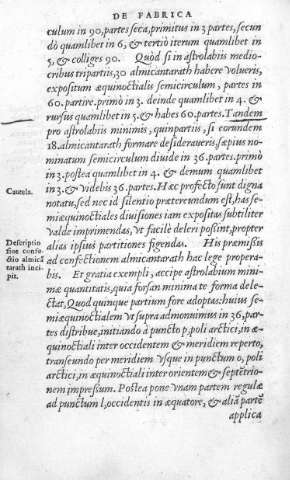 DE FABRICA
culum in 90, partes seca, primitus in 3 partes, secun
dò quamlibet in 6, & tertiò iterum quamlibet in
5, & colliges 90. Quòd si in astrolabiis medio-
cribus tripartiis, 30 almicantarath habere volueris,
expositum æquinoctialis semicirculum, partes in
60. partire. primò in 3. deinde quamlibet in 4. &
rursus quamlibet in 5. & habes 60. partes. Tandem
pro astrolabiis minimis, quinpartiis, si eorundem
18. almicantarath formare desideraueris. sæpius no-
minatum semicirculum diuide in 36. partes. primò
in 3. postea quamlibet in 4. & demum quamlibet
Cautela.
in 3. & videbis 36. partes. Hæc profectò sunt digna
notatu, sed nec id silentio prætereundum est, has se-
miæquinoctiales diuisiones iam expositas subtiliter
valde imprimendas, vt facile deleri possint, propter
Descriptio
siue confe-
ctio almicã
tarath inci
pit.
alias ipsius partitiones figendas. His præmissis
ad confectionem almicantarath hac lege propera-
bis. Et gratia exempli, accipe astrolabium mini-
mæ quantitatis, quia forsan minima te forma dele-
ctat, Quod quinque partium fore adoptas: huius se-
miæquinoctialem vt supra admonuimus in 36, par-
tes distribue, initiando à puncto p, poli arctici, in æ-
quinoctiali inter occidentem & meridiem reperto,
transeundo per meridiem vsque in punctum o, poli
arctici, in æquinoctiali inter orientem & septẽtrio-
nem impressum. Postea pone vnam partem regulæ
ad punctum l, occidentis in æquatore, & aliã partẽ
applica